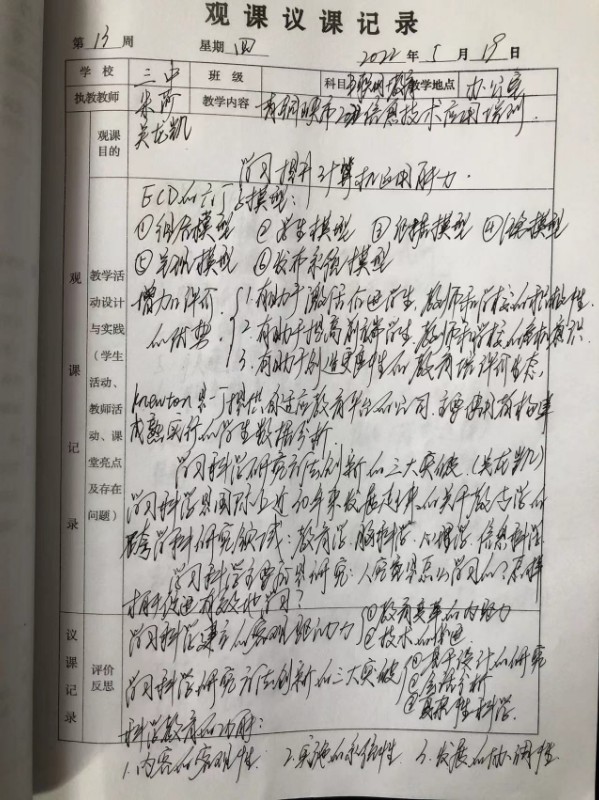 观课议课记录
第 13 周 星期 四 2022 年 5 月 19 日
学校 三中 班级 科目 互联网+教育 教学地点 办公室
执教教师 朱莎 吴龙凯 教学内容 信息技术应用培训
观课目的 学习提升计算机应用能力.
观课记录
教学活动设计与实践（学生活动、教师活动、课堂亮点及存在问题）
ECD的六个子模型：
①组合模型 ②学生模型 ③证据模型 ④任务模型
⑤呈现模型 ⑥发布系统模型
增加评价的优势
1. 有助于激活促进学生、教师和学校的积极性
2. 有助于提高学生、教师和学校的意识
3. 有助于创造更性的教育评价生态.
Knewton是一个提供自适应教育平台的公司，主要使用
成熟实时的学生数据分析.
学习科学研究方法创新的三大突破（吴龙凯）
学习科学是国际上近30年来发展起来的关于教与学的
跨学科研究领域：教育学、脑科学、心理学、信息科学
学习科学主要是研究：人究竟是怎么学习的？怎样
才能促进有效地学习？
议课记录
评价反思
学习科学建立的客观驱动力 ①教育变革的内驱力
②技术的推进
学习科学研究方法创新的三大突破 ①基于设计的研究
②会话分析
③科学.
科学教育的功用：
1. 内容的客观性 2. 实施的系统性 3. 发展的协调性